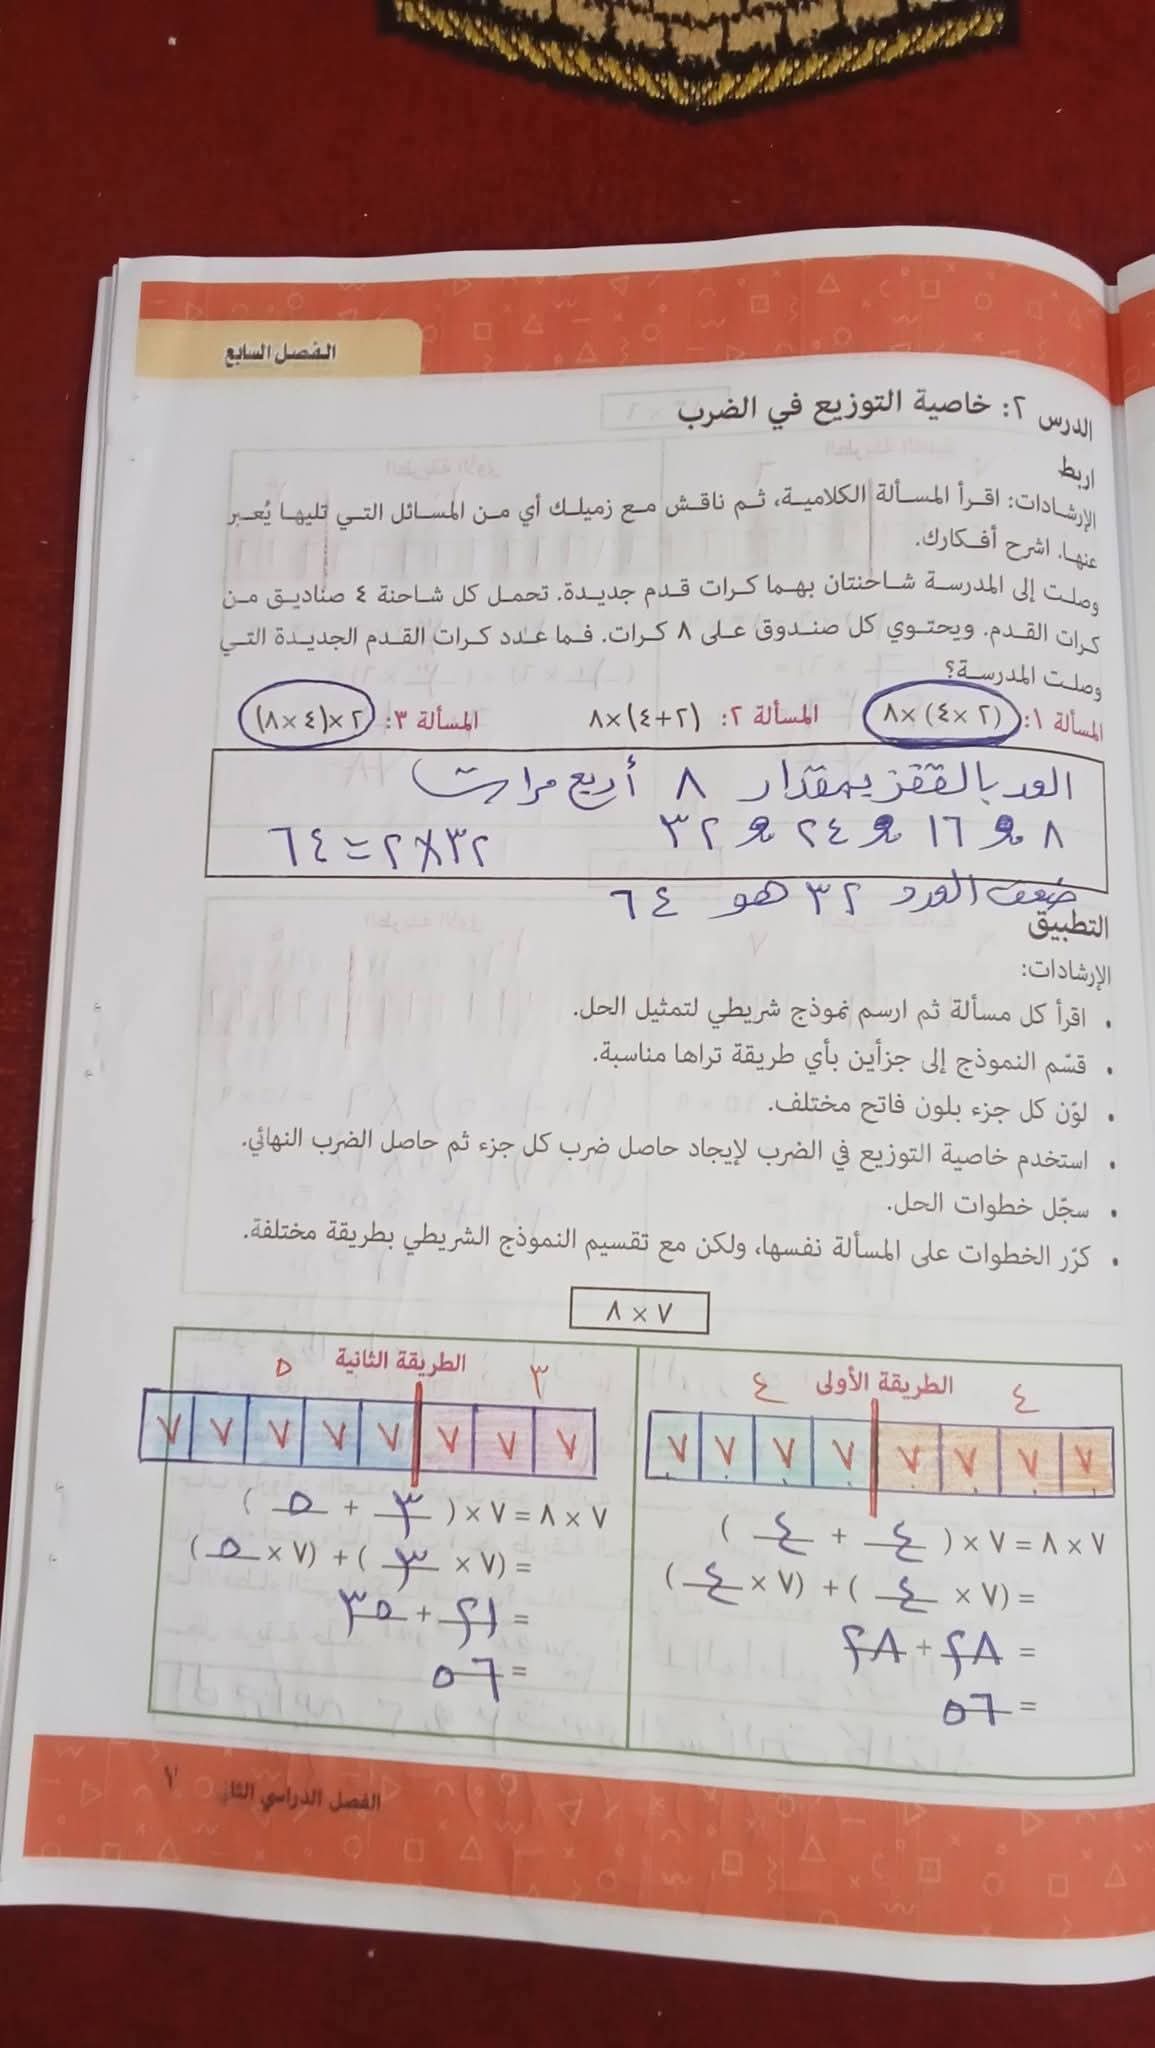 الفصل السابع
الدرس ٢: خاصية التوزيع في الضرب
اربط
الإرشادات: اقرأ المسألة الكلامية، ثم ناقش مع زميلك أي من المسائل التي تليها يُعبر
عنها. اشرح أفكارك.
وصلت إلى المدرسة شاحنتان بهما كرات قدم جديدة. تحمل كل شاحنة ٤ صناديق من
كرات القدم. ويحتوي كل صندوق على ٨ كرات. فما عدد كرات القدم الجديدة التي
وصلت المدرسة؟
المسألة ١: (٢ × ٤) ×٨ المسألة ٢: (٢+٤)×٨ المسألة ٣: ٢×(٤ ×٨)
العد بالقفز بمقدار ٨ أربع مرات
٨ و ١٦ و ٢٤ و ٣٢
٣٢ × ٢ = ٦٤
ضعف العدد ٣٢ هو ٦٤
التطبيق
الإرشادات:
• اقرأ كل مسألة ثم ارسم نموذج شريطي لتمثيل الحل.
• قسّم النموذج إلى جزأين بأي طريقة تراها مناسبة.
• لوّن كل جزء بلون فاتح مختلف.
• استخدم خاصية التوزيع في الضرب لإيجاد حاصل ضرب كل جزء ثم حاصل الضرب النهائي.
• سجّل خطوات الحل.
• كرّر الخطوات على المسألة نفسها، ولكن مع تقسيم النموذج الشريطي بطريقة مختلفة.
٧ × ٨
٤ الطريقة الأولى ٤
٧ ٧ ٧ ٧ ٧ ٧ ٧ ٧
٧ × ٨ = ٧ × ( ٤ + ٤ )
= (٧ × ٤ ) + (٧ × ٤ )
= ٢٨ + ٢٨
= ٥٦
٣ الطريقة الثانية ٥
٧ ٧ ٧ ٧ ٧ ٧ ٧ ٧
٧ × ٨ = ٧ × ( ٣ + ٥ )
= (٧ × ٣ ) + (٧ × ٥ )
= ٢١ + ٣٥
= ٥٦
الفصل الدراسي
٧